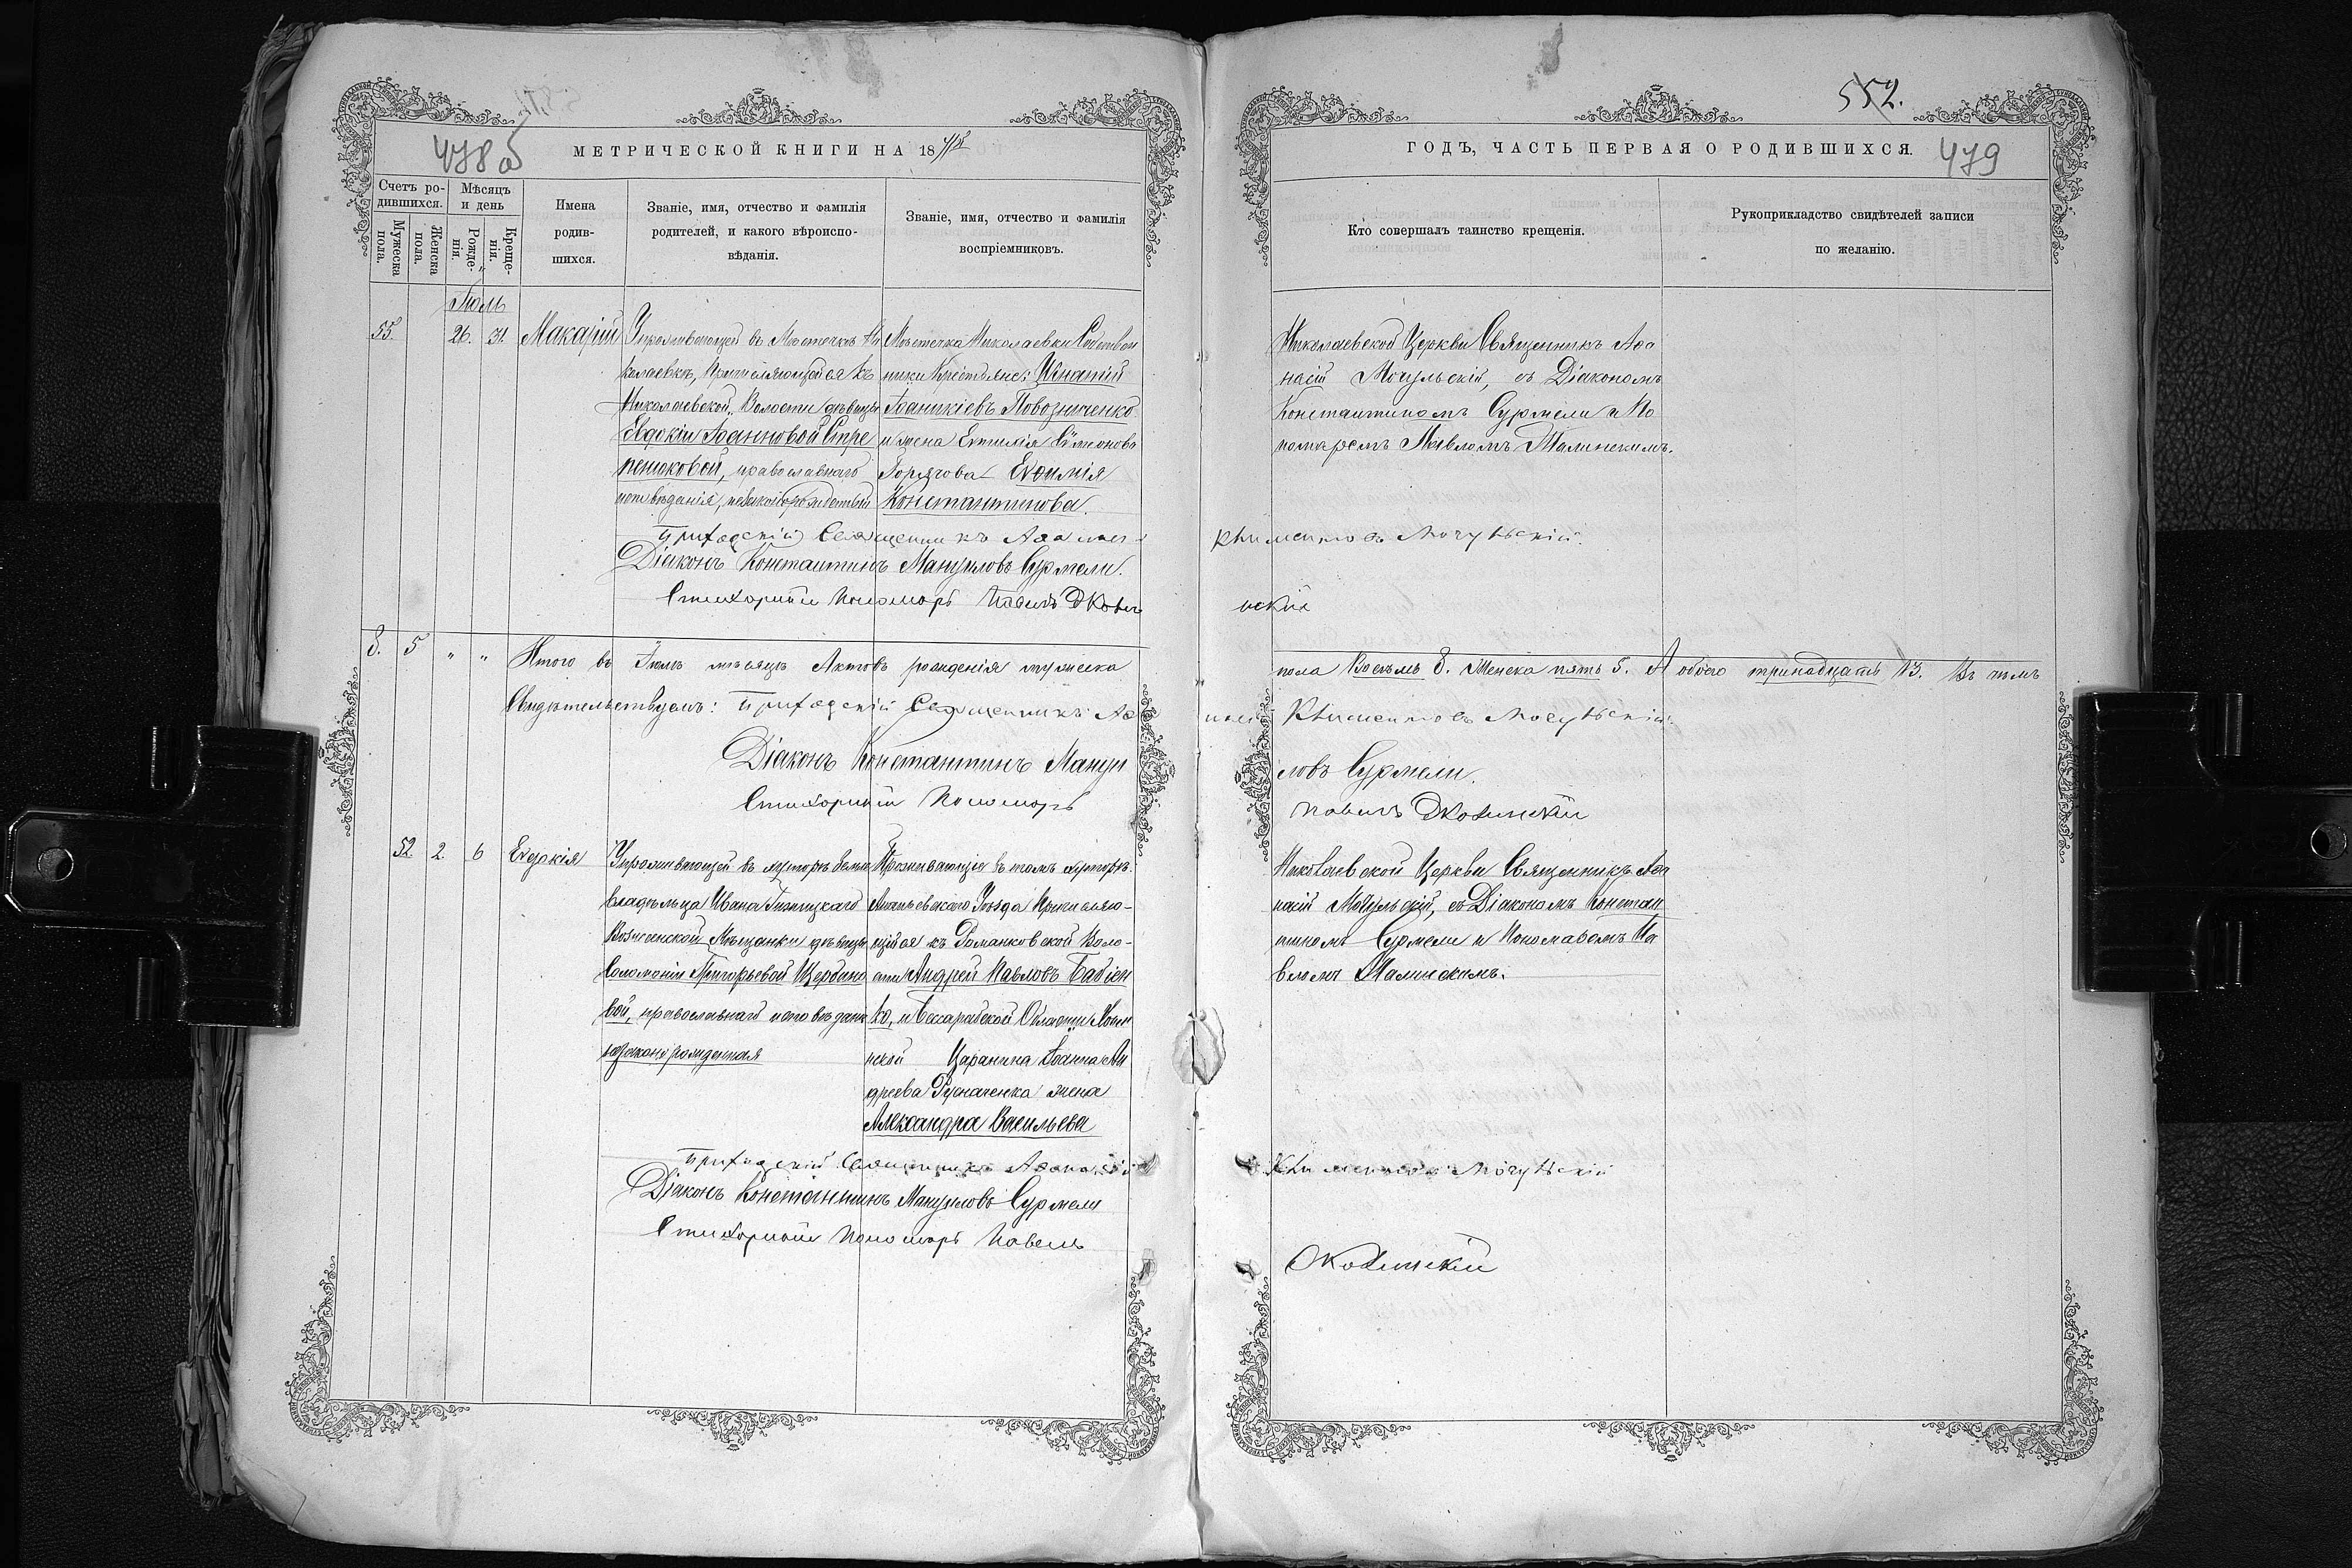 478 об
МЕТРИЧЕСКОЙ КНИГИ НА 18
Счетъ ро-
дившихся.
Мѣсяцъ
и день
Мужеска
пола.
Женска
пола.
Рожде-
нія.
Креще-
нія.
Имена
родив-
шихся.
Званіе, имя, отчество и фамилія
родителей, и какого вѣроиспо-
вѣданія.
Званіе, имя, отчество и фамилія
воспріемниковъ.
Іюль
55. 26. 31. Макарій
Проживающей въ Мѣстечкѣ Ни
колаевкѣ, Причисляющейся къ
Николаевской Волости дѣвицы
Евдокіи Іоанновой
православнаго
исповѣданія, незаконнорожденный
Мѣстечка Николаевки Собствен
ники Крестьяне: Игнатій
Іоаникіевъ Повозниченко
и жена Симеонова
Евфимія
Константинова.
Приходскій Священникъ
Діаконъ Константинъ Мануиловъ Сурмели.
Стихарный Пономарь Павелъ
8. 5 " " Итого въ Іюлѣ мѣсяцѣ Актовъ рожденія мужеска
Свидѣтельствуемъ: Приходскій Священникъ
Діаконъ Константинъ Мануи
Стихарный Пономарь
52. 2 6 Евдокія
Проживающей въ хуторѣ Земле
владѣльца Ивана
Вознесенской Мѣщанки дѣвицы
Соломоніи Григорьевой Щербако
вой, православнаго исповѣданія
незаконорожденная
Проживающіе въ томъ хуторѣ
Ананьевскаго Уѣзда Причисляю-
щійся къ Романковской Воло-
сти Андрей Павловъ Бабіен
ко, и Бессарабской Области
Царанина Іоанна Ан
дреева жена
Александра Васильева
Приходскій Священникъ Аѳанасій
Діаконъ Константинъ Мануиловъ Сурмели
Стихарный Пономарь Павелъ
552.
ГОДЪ, ЧАСТЬ ПЕРВАЯ О РОДИВШИХСЯ.
479
Кто совершалъ таинство крещенія.
Рукоприкладство свидѣтелей записи
по желанію.
Николаевской Церкви Священникъ Аѳа
насій Могульскій, съ Діакономъ
Константиномъ Сурмели и По
номаремъ Павломъ
Климентовъ Могульскій.
нскій
пола Восемь 8. Женска пять 5. А обоего тринадцать 13. Въ чемъ
Климентовъ Могульскій.
ловъ Сурмели.
Павелъ
Николаевской Церкви Священникъ Аѳа
насій Могульскій, съ Діакономъ Констан
тиномъ Сурмели и Пономаремъ Па
вломъ
Климентовъ Могульскій